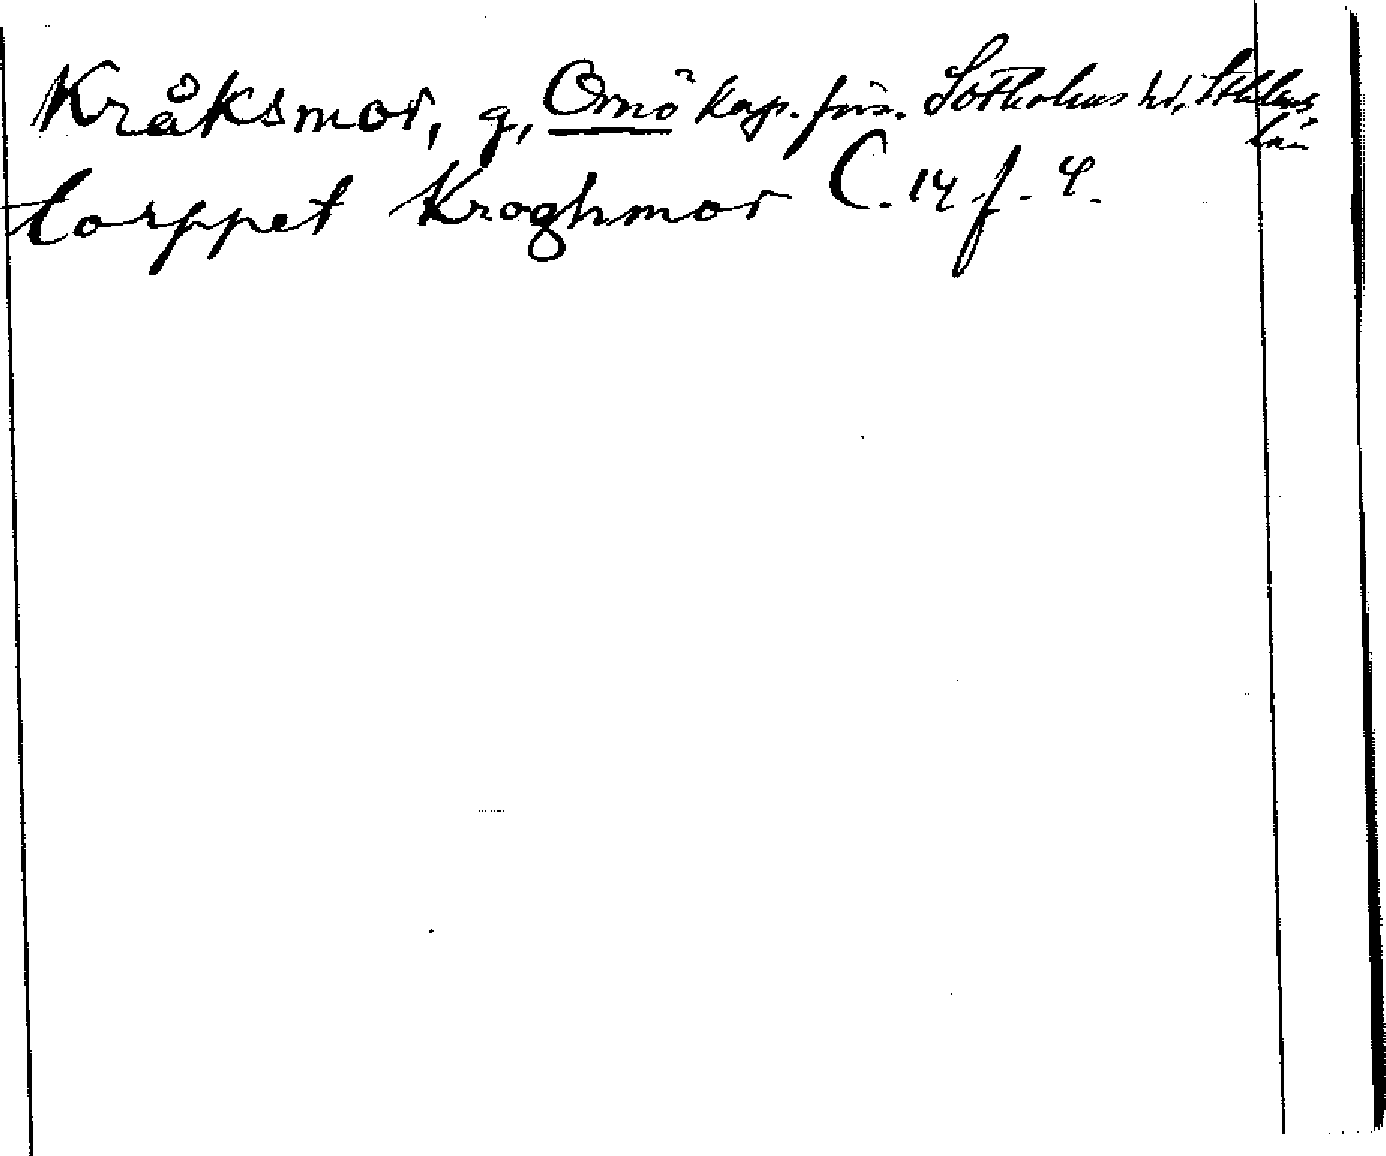 Kråksmor, g, Ornö kap. förs. Sotholms hd, Sthlms
län
torppet Kroghmor C. 14 f. 4.